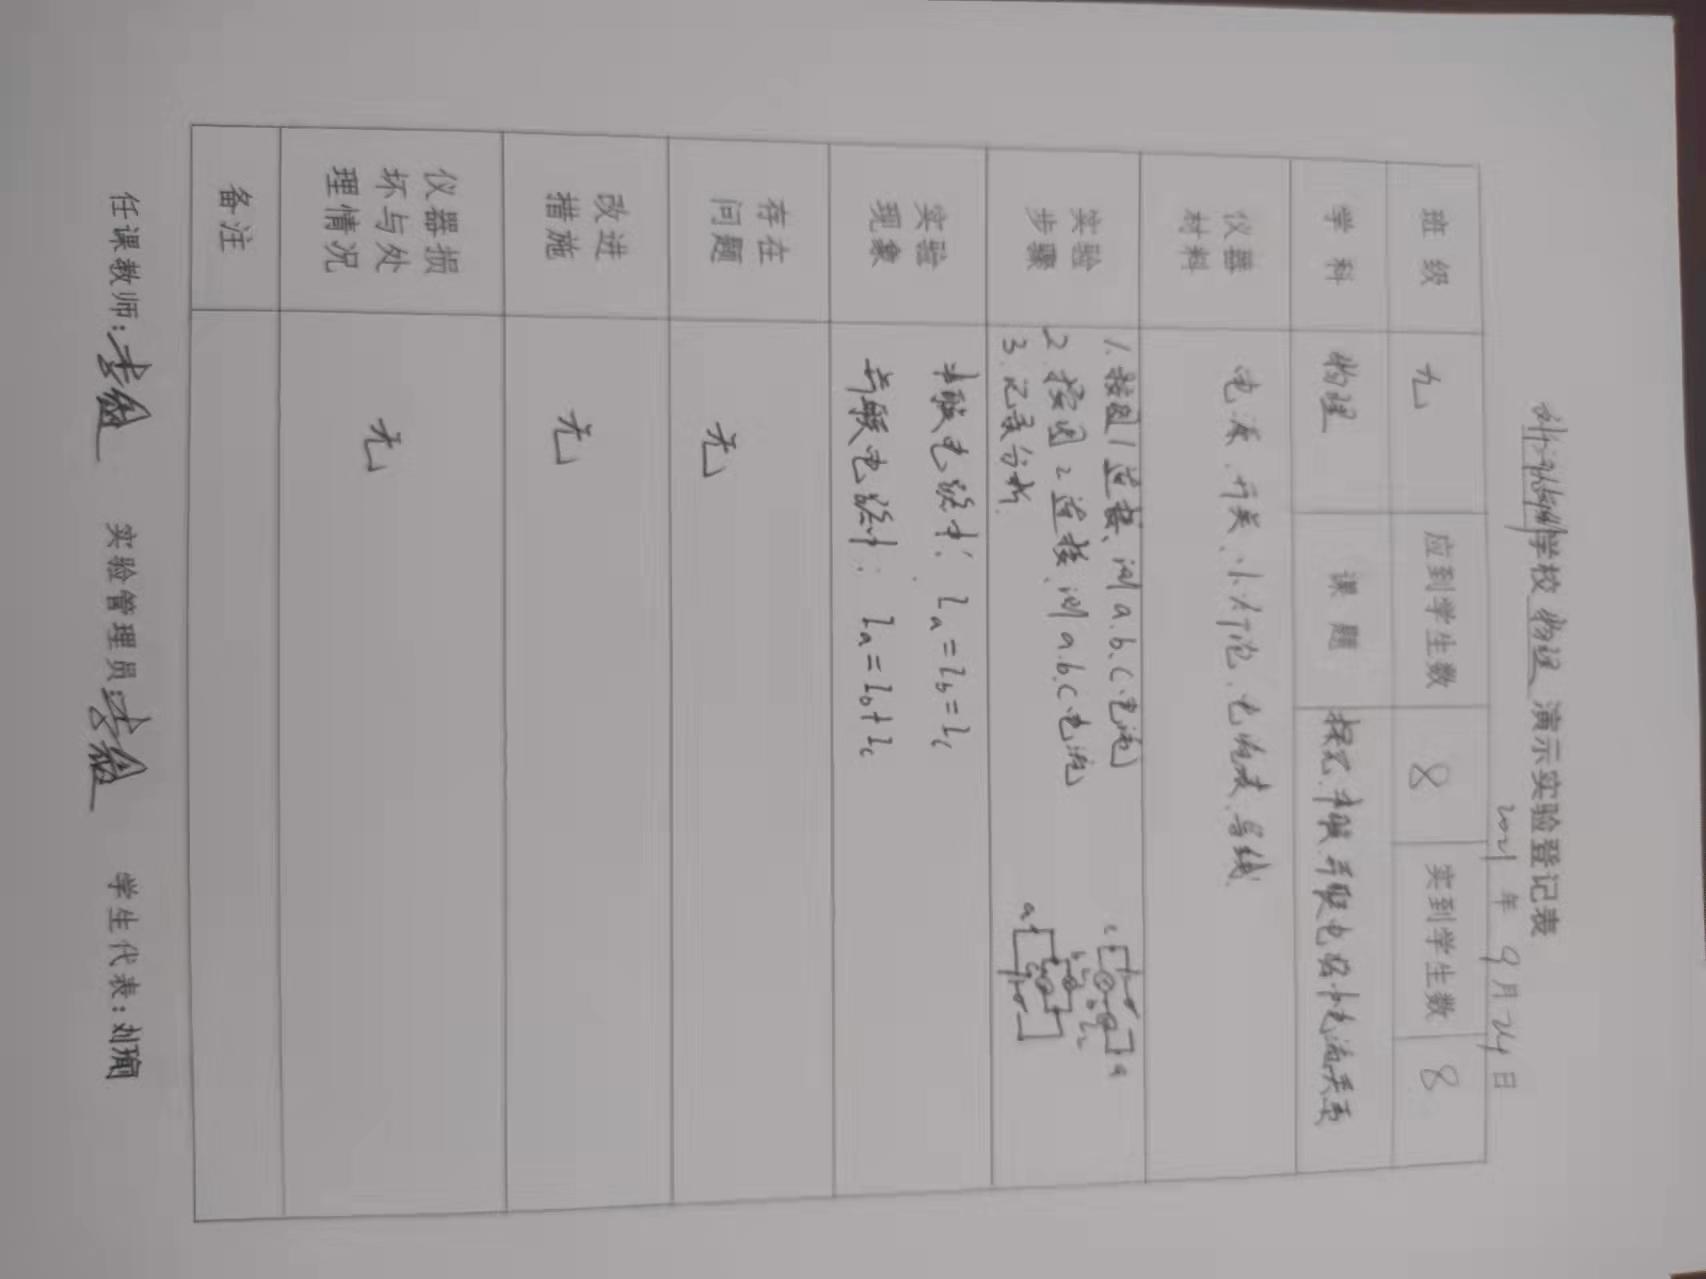 学校 物理 演示实验登记表
2021 年 9 月 24 日
班 级 九 应到学生数 8 实到学生数 8
学 科 物理 课 题 探究串联并联电路中电流关系
仪器
材料
电源、开关、小灯泡、电流表、导线
实验
步骤
1. 按图1连接、测a.b.c电流
2. 按图2连接、测a.b.c电流
3. 记录分析.
c a
b
L₁ L₂
a
实验
现象
串联电路中: Ia=Ib=Ic
并联电路中: Ia=Ib+Ic
存在
问题
无
改进
措施
无
仪器损
坏与处
理情况
无
备注
任课教师: 实验管理员: 学生代表:刘瑜